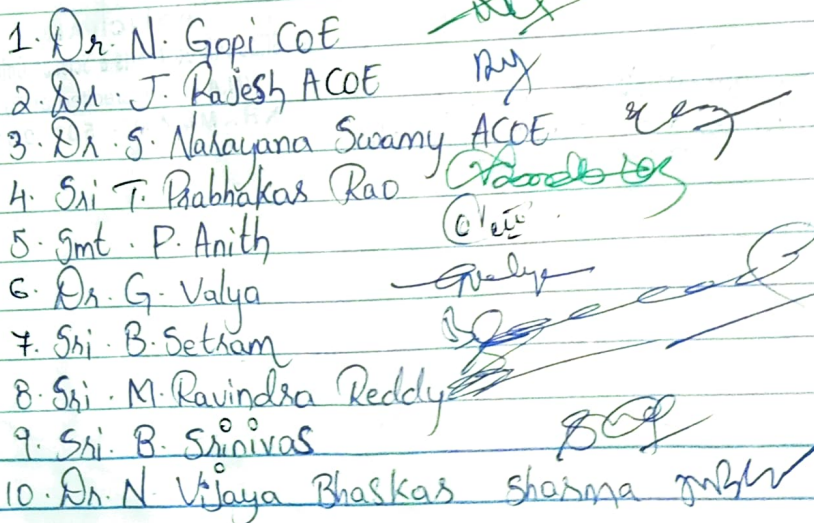 1. Dr. N. Gopi COE
2. Dr. J. Rajesh ACOE
3. Dr. S. Narayana Swamy ACOE
4. Sri T. Prabhakar Rao
5. Smt. P. Anith
6. Dr. G. Valya
7. Sri. B. Setram
8. Sri. M. Ravindra Reddy
9. Sri. B. Srinivas
10. Dr. N. Vijaya Bhaskar Sharma